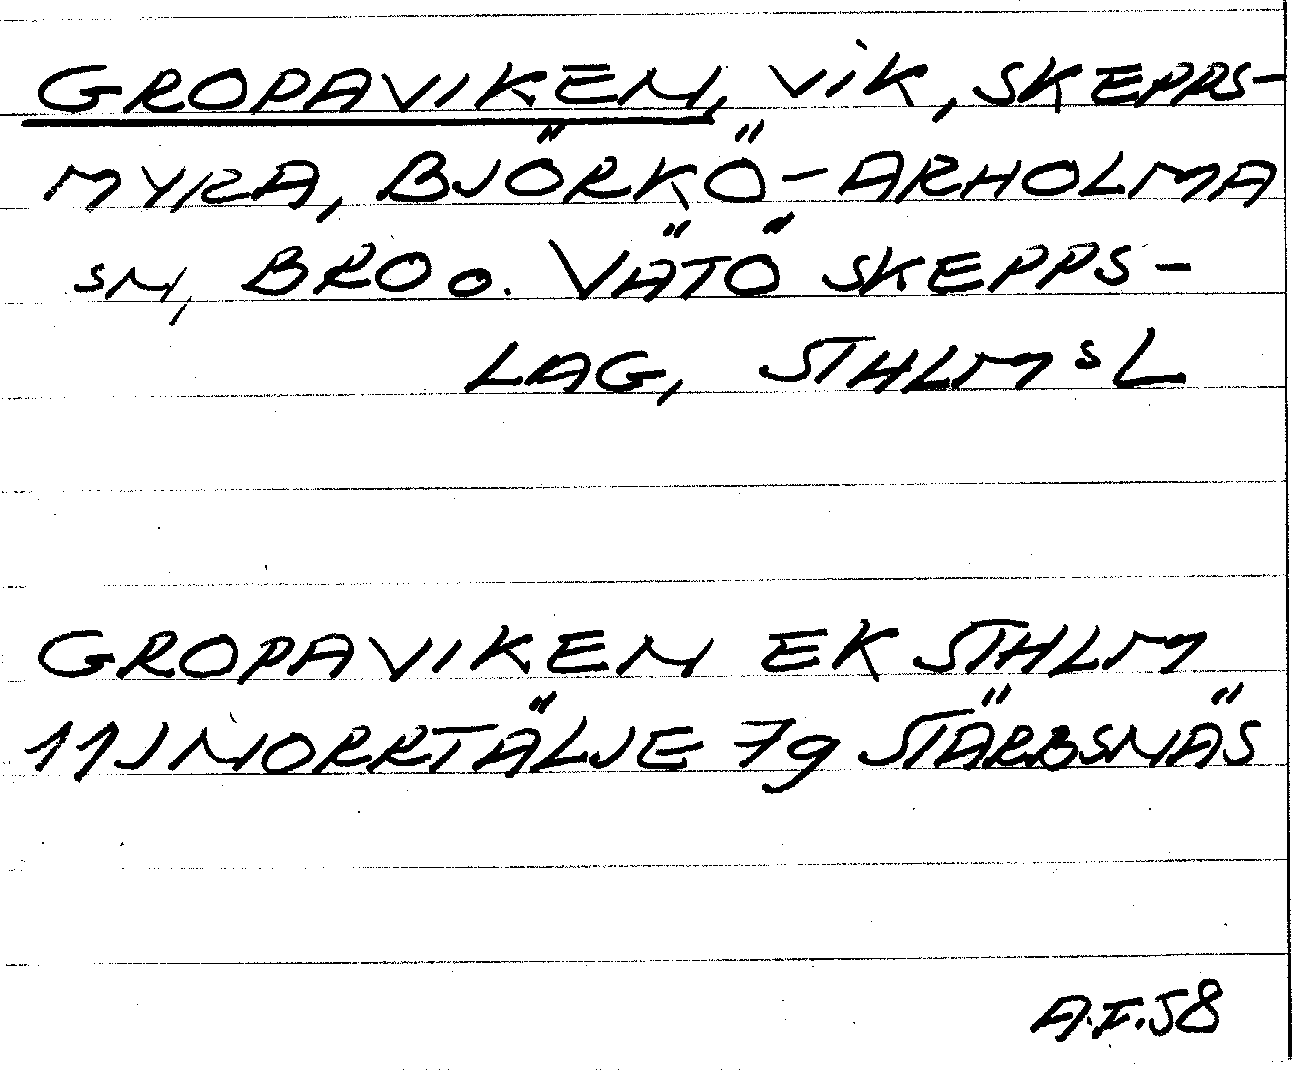 GROPAVIKEN, VIK, SKEPPS-
MYRA, BJÖRKÖ-ARHOLMA
SN, BRO o. VÄTÖ SKEPPS-
LAG, STHLMSL
GROPAVIKEN EK STHLM
11J NORRTÄLJE 7g STÄRBSNÄS
A.I.58